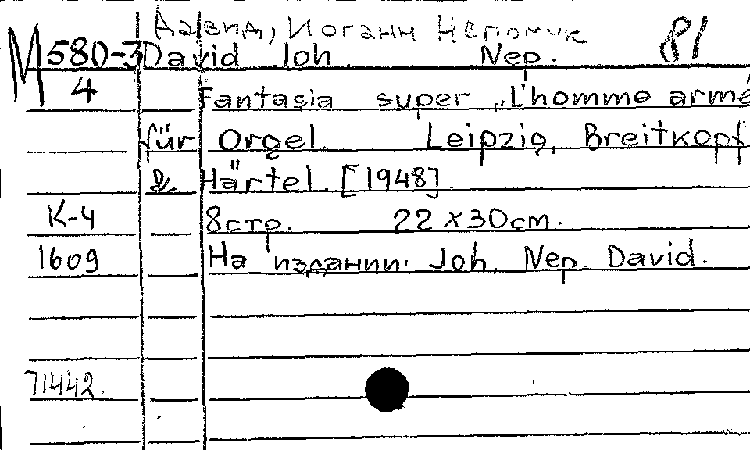 Давид, Иоганн Непомук
М 580-3 David Joh Nep. 81
4 Fantasia super „L'homme armé
für Orgel Leipzig, Breitkopf
& Härtel [1948]
К-4 8стр. 22 x 30см.
1609 На издании: Joh. Nep. David.
71442.